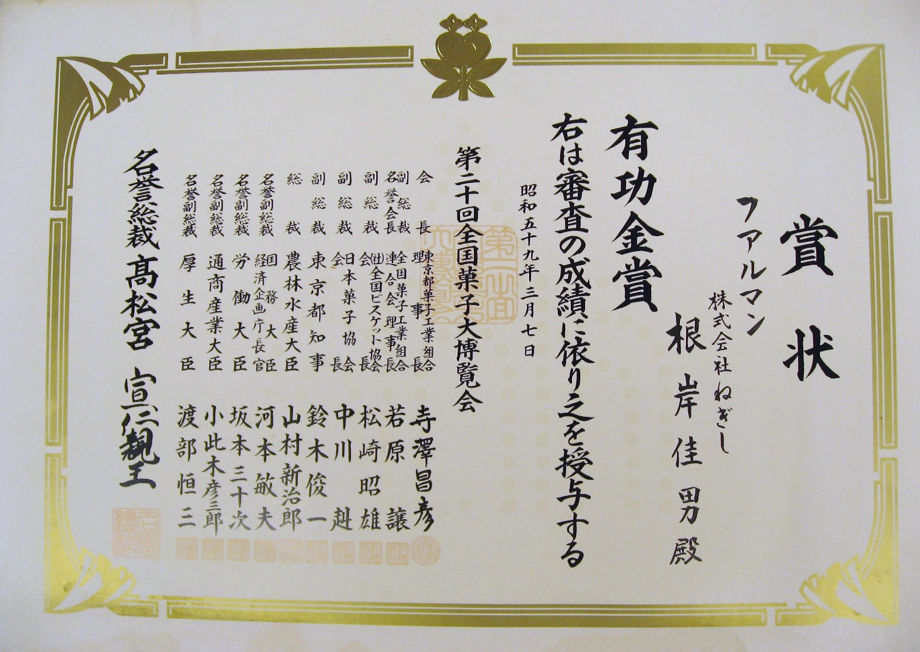 賞状
ファルマン
株式会社ねぎし
根岸佳男殿
有功金賞
右は審査の成績に依り之を授与する
昭和五十九年三月七日
第二十回全国菓子大博覧会
会長 東京都菓子工業組合理事長 寺澤昌彦
副総裁 名誉会長 全国菓子工業組合連合会理事長 若原譲
副総裁 社全国ビスケット協会会長 松崎昭雄
副総裁 日本菓子協会会長 中川赳
副総裁 東京都知事 鈴木俊一
総裁 農林水産大臣 山村新治郎
名誉副総裁 国務大臣 経済企画庁長官 河本敏夫
名誉副総裁 労働大臣 坂本三十次
名誉副総裁 通商産業大臣 小此木彦三郎
名誉副総裁 厚生大臣 渡部恒三
名誉総裁 高松宮宣仁親王